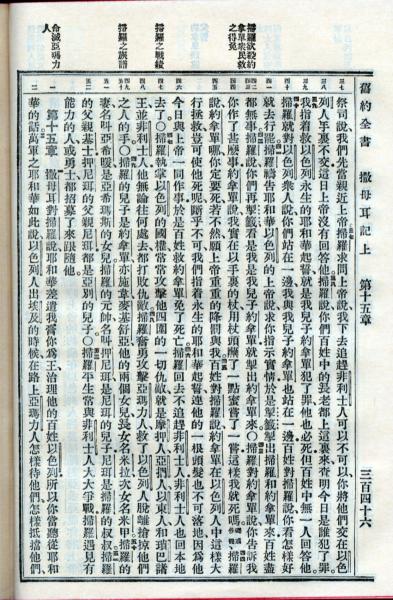 舊約全書 撒母耳記上 第十五章 三百四十六
掃羅欲殺約
拿單衆民救
之得免
掃羅之戰績
掃羅之族譜
命滅亞瑪力
人
祭司說我們先當親近上帝掃羅求問上帝說我下去追趕非利士人可以不可以你將他們交在以色
列人手裏不交這日上帝沒有回答他掃羅說你們百姓中的長老都上這裏來查明今日是誰犯了罪
我指着救以色列永生的耶和華起誓就是我兒子約拿單犯了罪他也必死但百姓中無一人回答他
掃羅就對以色列衆人說你們站在一邊我與我兒子約拿單也站在一邊百姓對掃羅說你看怎樣好
就去行罷掃羅禱告耶和華以色列的上帝說求你指示實情於是掣籤掣出掃羅和約拿單來百姓盡
都無事掃羅說你們再掣籤看是我是我兒子約拿單就掣出約拿單來○掃羅對約拿單說你告訴我
你作了甚麼事約拿單說我實在以手裏的杖用杖頭蘸了一點蜜嘗了一嘗這樣我就死
說約拿單哪你定要死若不然願上帝重重的降罰與我百姓對掃羅說約拿單在以色列人中這樣大
行拯救豈可使他死呢斷乎不可我們指着永生的耶和華起誓連他的一根頭髮也不可落地因為他
今日與上帝一同作事於是百姓救約拿單免了死亡掃羅回去不追趕非利士人非利士人也回本地
去了○掃羅執掌以色列的國權常常攻擊他四圍的一切仇敵就是摩押人亞捫人以東人和瑣巴諸
王並非利士人他無論往何處去都打敗仇敵掃羅奮勇攻擊亞瑪力人救了以色列人脫離搶掠他們
之人的手○掃羅的兒子是約拿單亦施韋麥基舒亞他的兩個女兒長女名米拉次女名米甲掃羅的
妻名叫亞希暖是亞希瑪斯的女兒掃羅的元帥名叫押尼珥是尼珥的兒子尼珥是掃羅的叔叔掃羅
的父親基士押尼珥的父親尼珥都是亞別的兒子○掃羅平生常與非利士人大大爭戰掃羅遇見有
能力的人或勇士都招募了來跟隨他
第十五章 撒母耳對掃羅說耶和華差遣我膏你為王治理他的百姓以色列所以你當聽從耶和
華的話萬軍之耶和華如此說以色列人出埃及的時候在路上亞瑪力人怎樣待他們怎樣抵擋他們